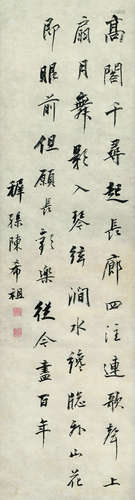 高閣千尋起長廊四注連歌聲上
扇月舞影入琴絃澗水纔牕外山花
即眼前但願長歡樂從今盡百年
穉孫陳希祖